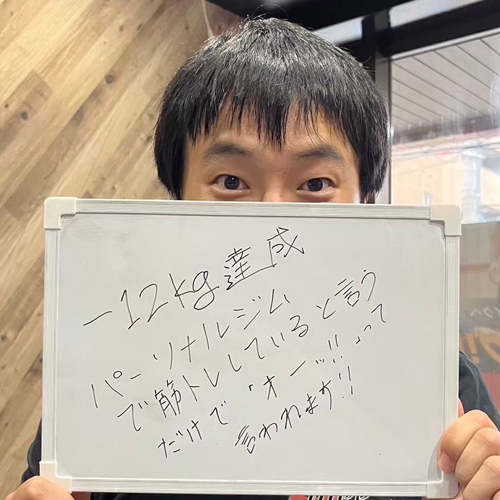 -12kg達成
パーソナルジム
で筋トレしていると言う
だけで「オーッ!!」って
言われます!!